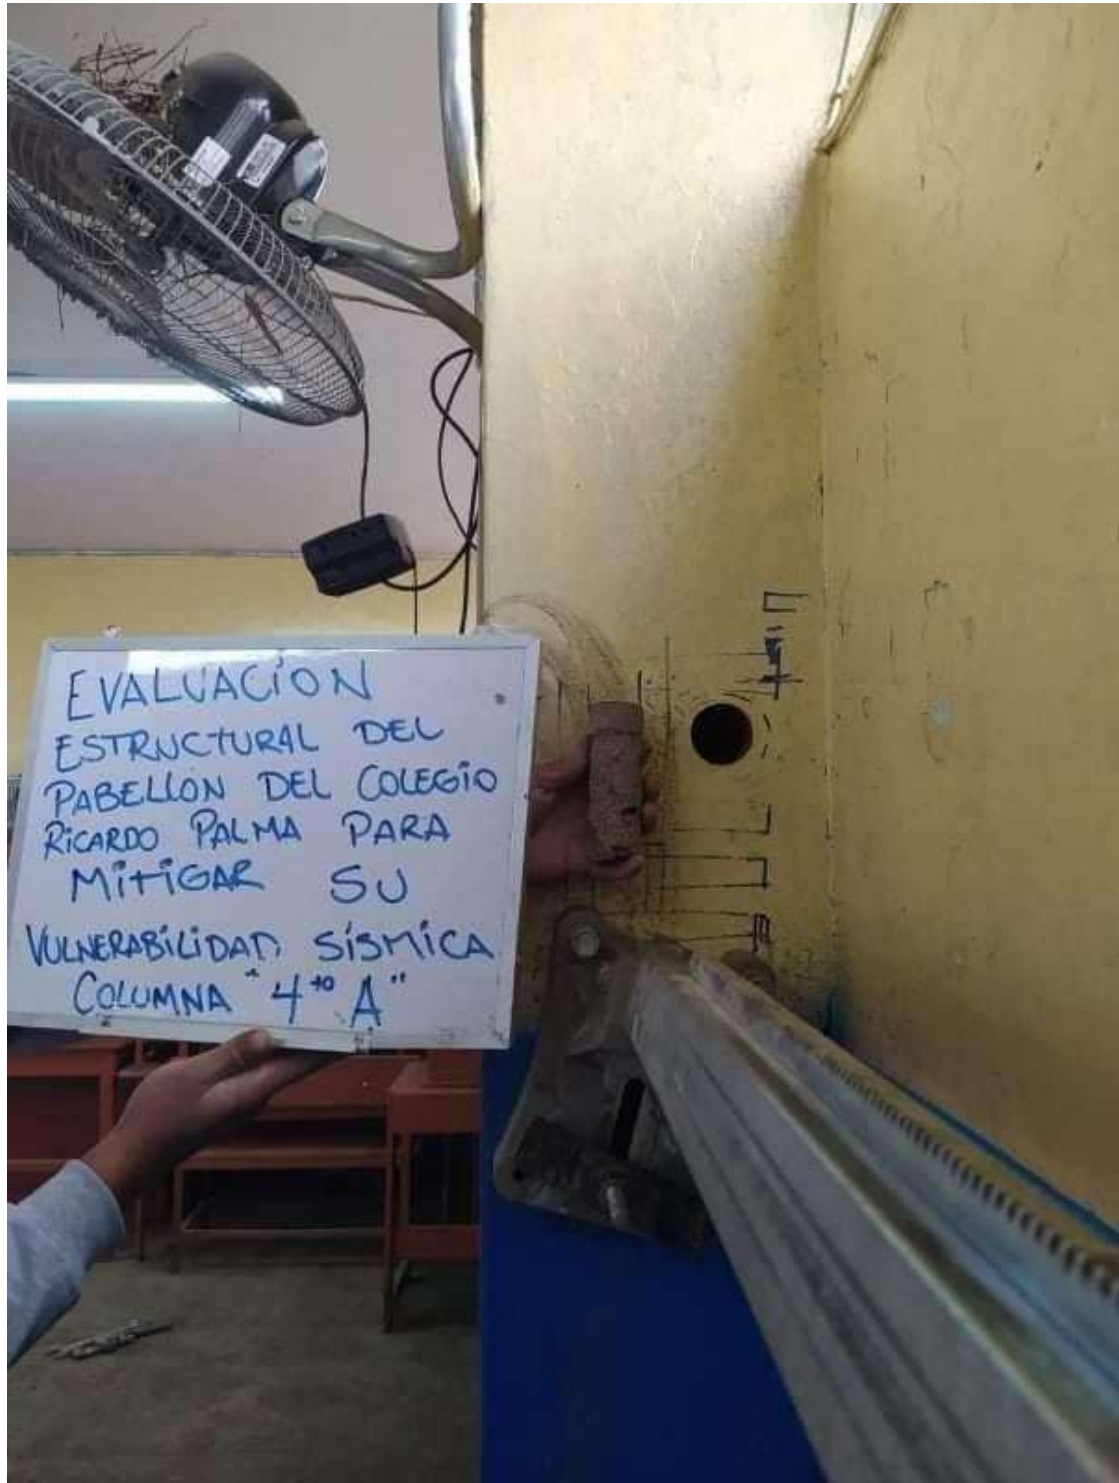 EVALUACIÓN
ESTRUCTURAL DEL
PABELLON DEL COLEGIO
RICARDO PALMA PARA
MITIGAR SU
VULNERABILIDAD SÍSMICA
COLUMNA "4to A"